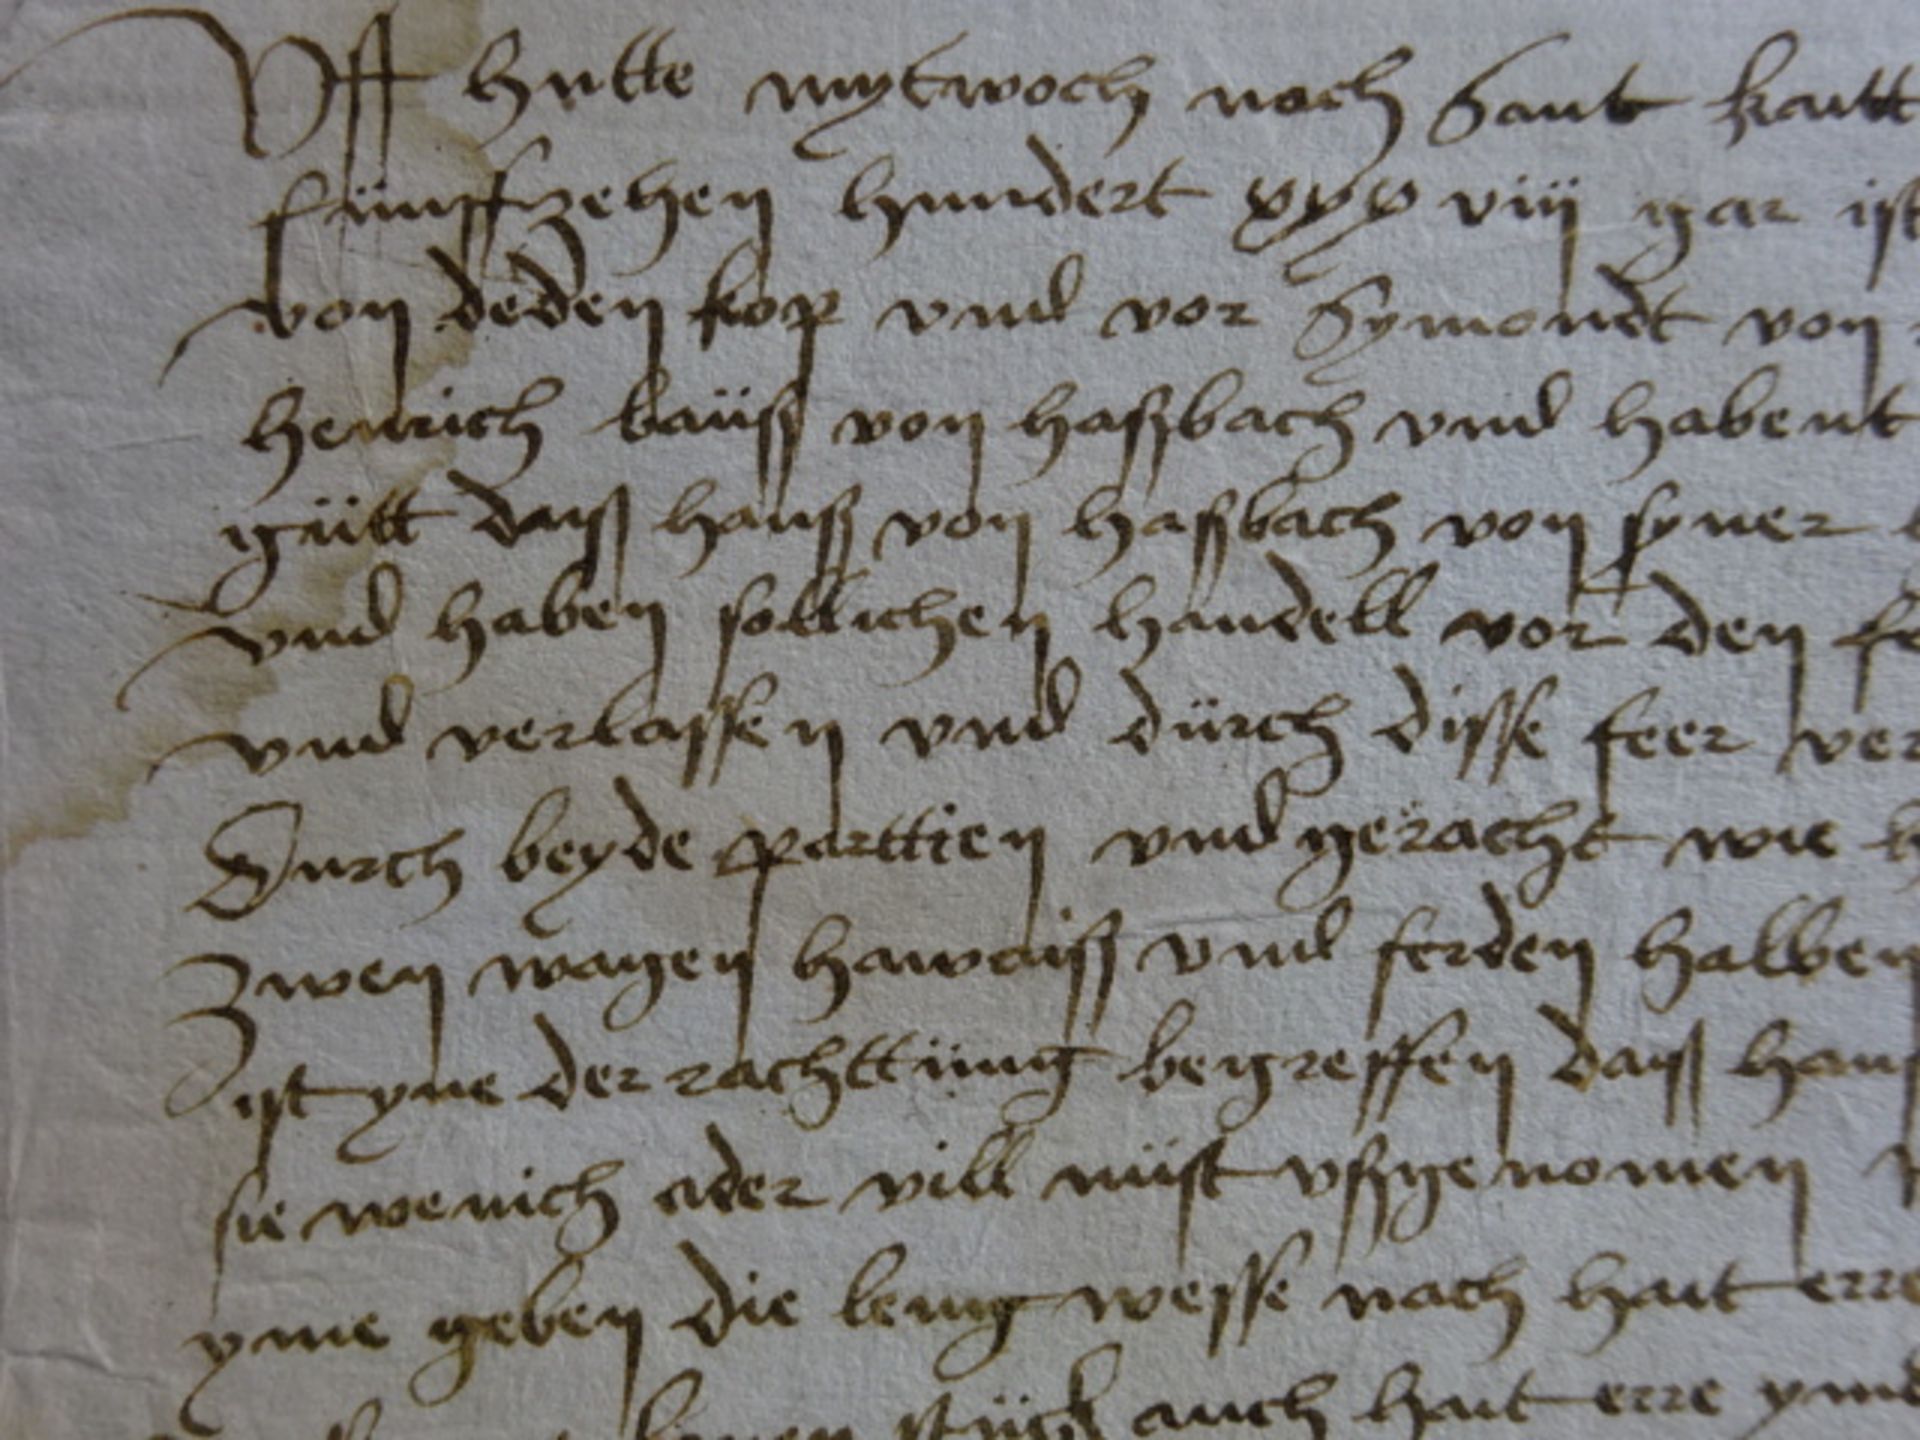 Vff hutte mytwoch noch Sant katt
fünffzehen hundert xxx viij yar ist
von deden kop vnd vor Symondt von
henrich baüß von haßbach vnd habent
gütt daß hanß von haßbach von syner
vnd haben sollichen handell vor den
vnd verlassen vnd dürch disse feer ver
Durch beyde parttien vnd geracht wie
zwen wagen hawaiß vnd ferden halben
ist yne der rachttüng begreffen daß hanß
sie wenich ader vill nüist vßgenomen
yme geben die leng wesse nach hait erre
stück auch hait erre yme